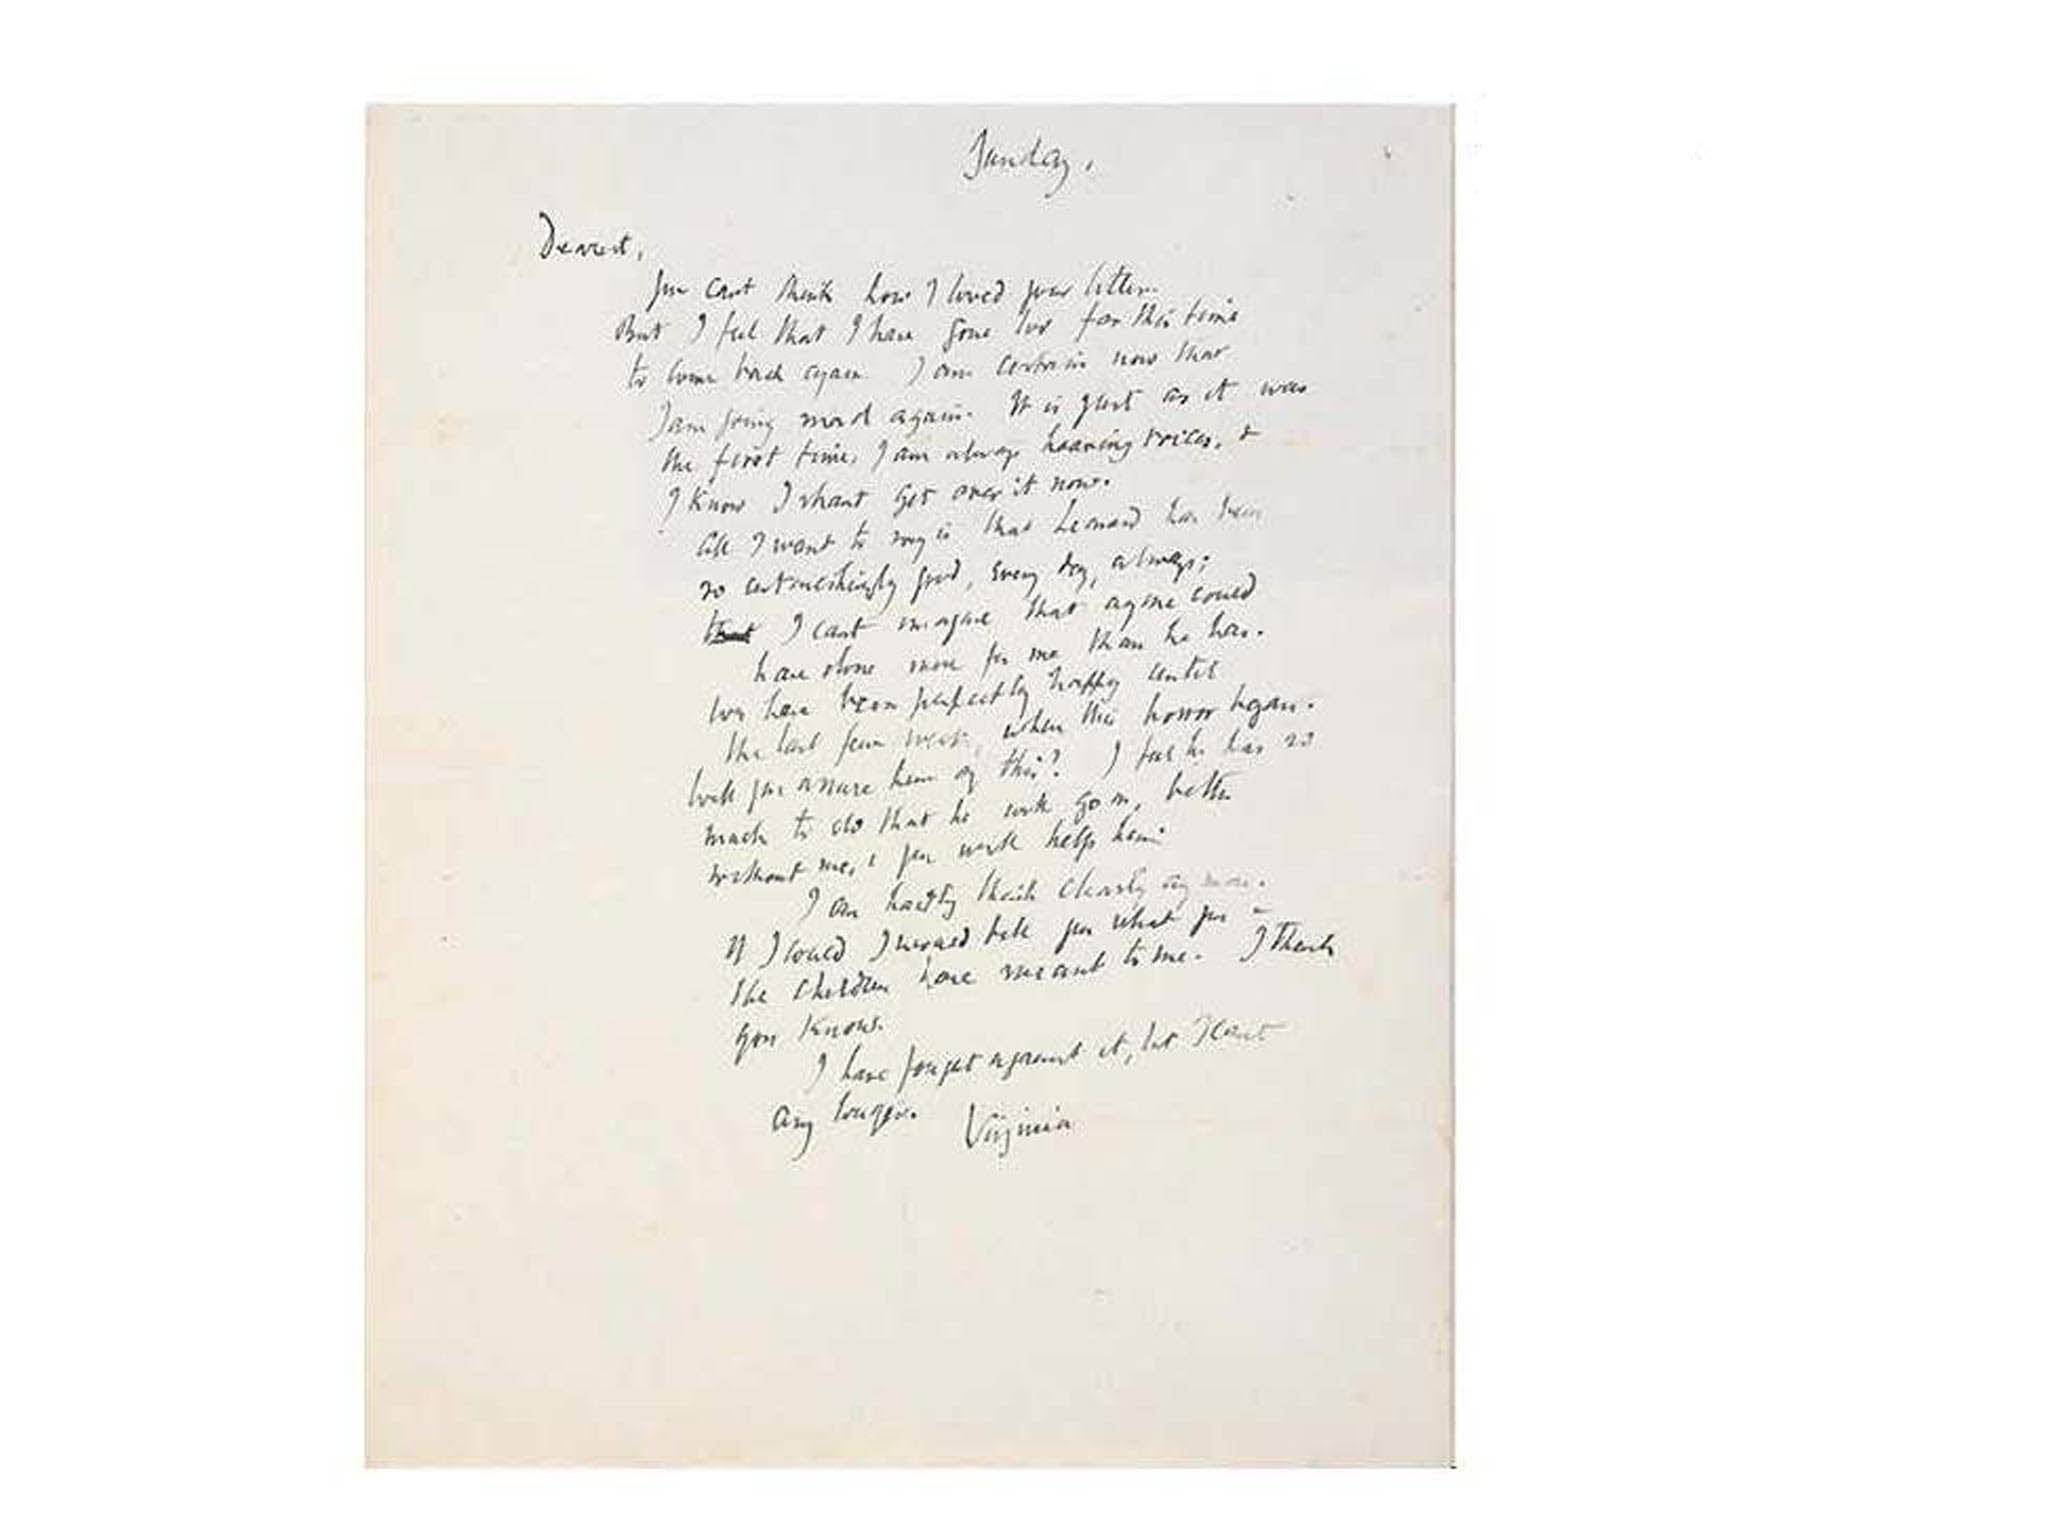 Sunday.
Dearest,
You cant think how I loved your letter.
But I feel that I have gone too far this time
to come back again. I am certain now that
I am going mad again. It is just as it was
the first time, I am always hearing voices, &
I know I shant get over it now.
All I want to say is that Leonard has been
so astonishingly good, every day, always;
that I cant imagine that anyone could
have done more for me than he has.
We have been perfectly happy until
the last few weeks, when this horror began.
Will you assure him of this? I feel he has so
much to do that he will go on, better
without me, & you will help him.
I can hardly think clearly any more.
If I could I would tell you what you &
the children have meant to me. I think
you know.
I have fought against it, but I cant
any longer. Virginia